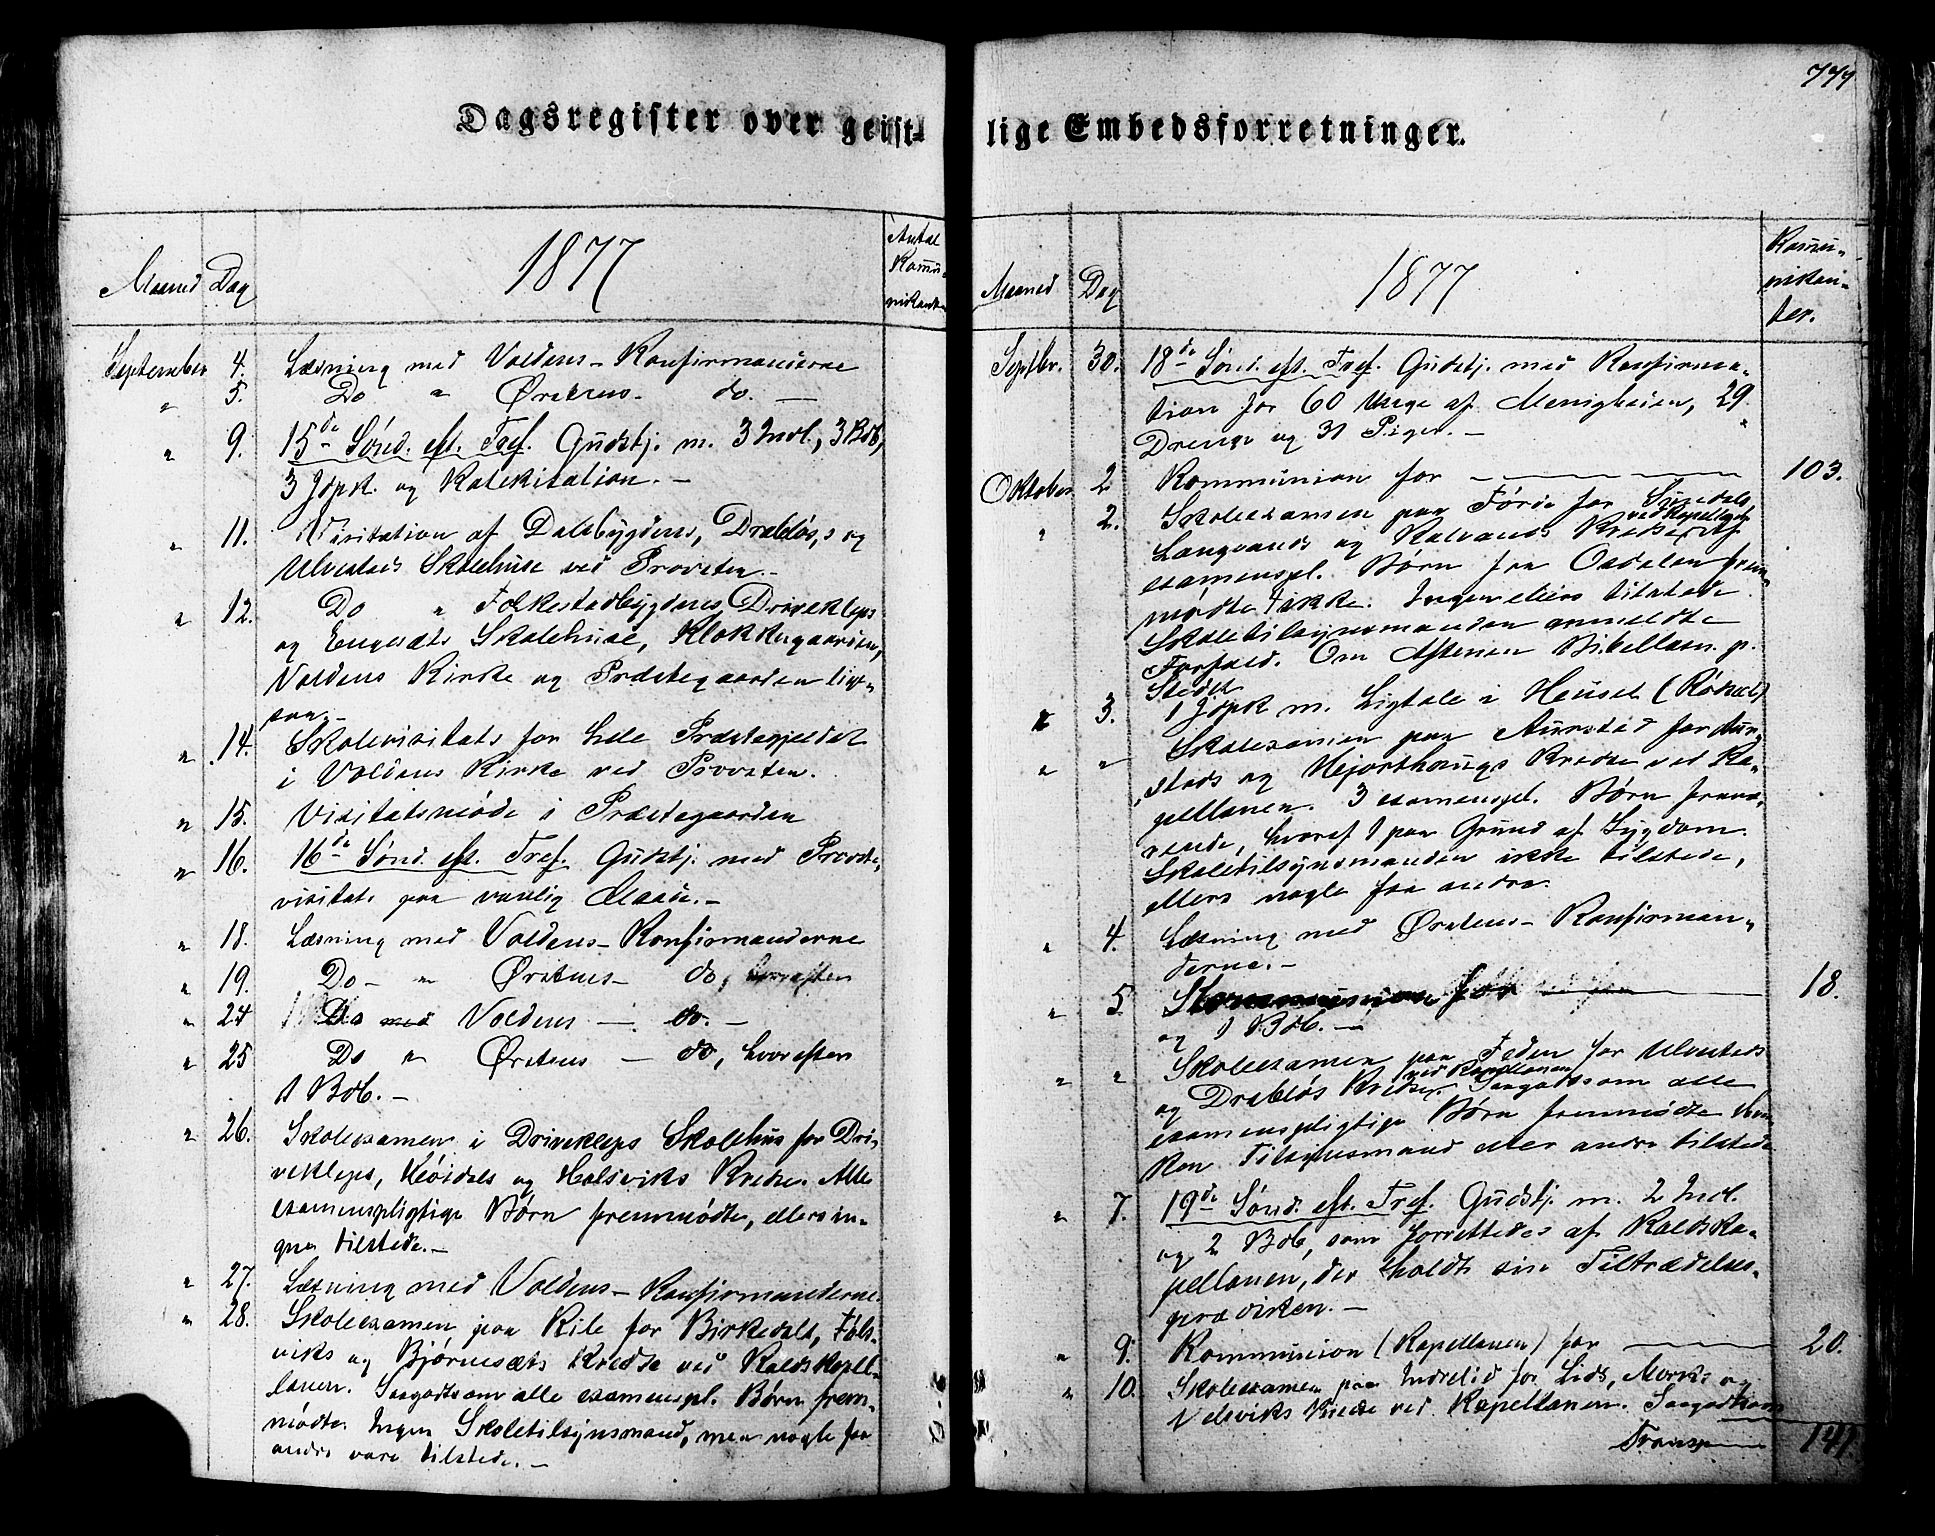 Dagsregister over geist-
Maaned Dag 1877 Antal Kommu-
nikanter
September 4. Læsning med Voldens-Konfirmanderne
" 5. Do " Ørstens- do. —
" 9. 15de Sønd. eft. Tref. Gudstj. m. 3 Indl., 3 Bdb,
3 Jdpk. og Katekisation. —
" 11. Visitation af Dalsbygdens, Drabløs,s og
Ulvestads Skolehuse ved Provsten. —
" 12. Do " Folkestadbygdens, Drivekleps
og Engesæts Skolehuse, Klokkergaarden,
Voldens Kirke og Præstegaarden lige-
saa. —
" 14. Skolevisitats for hele Præstegjeldet
i Voldens Kirke ved Provsten.
" 15. Visitatsmøde i Præstegaarden
" 16. 16de Sønd. eft. Tref. Gudstj. med Provste-
visitats paa vanlig Maade. —
" 18. Læsning med Voldens-Konfirmanderne
" 19. Do — " Ørstens- do, hvorefter
" 24 Do med Voldens — do. —
" 25 Do " Ørstens — do, hvorefter
1 Bdb. —
" 26. Skoleexamen i Drivekleps Skolehus for Dri-
vekleps, Høidals og Halsviks Kredse. Alle
examenspligtige Børn fremmødte, ellers in-
gen tilstede. —
" 27. Læsning med Voldens-Konfirmanderne.
" 28. Skoleexamen paa Kile for Birkedals, Føls-
viks og Bjørnesæts Kredse ved Kaldskapel-
lanen. Saagodtsom alle examenspl. Børn frem-
mødte. Ingen Skoletilsynsmand, men nogle faa
andre vare tilstede. —
lige Embedsforretninger.
779
Maaned Dag 1877 Kommu-
nikan-
ter.
Septbr. 30. 18de Sønd. eft. Tref. Gudstj. med Konfirma-
tion for 60 Unge af Menigheden, 29
Drenge og 31 Piger. —
Oktober 2 Kommunion for — 103.
" 2. Skoleexamen paa Førde for
Langvands og Kalvands Kredse ved Kapellanen. Af
examenspl. Børn fra Osdalen frem-
mødte ikke. Ingen ellers tilstede
Skoletilsynsmanden anmeldte
Forfald. Om Aftenen Bibellæsn. p.
Stedet
" 3. 1 Jdpk m. Ligtale i Huset (Rødsæt)
" " Skoleexamen paa Aurstad for Aur-
stads og Hjorthougs Kredse ved Ka-
pellanen. 3 examenspl. Børn fravæ-
rende, hvoraf 1 paa Grund af Sygdom.
Skoletilsynsmanden ikke tilstede,
ellers nogle faa andre.
" 4. Læsning med Ørstens-Konfirman-
derne. —
" 5. Kommunion for — 18.
og 1 Bdb. —
" " Skoleexamen paa for Ulvestads
og Drabløs Kredse ved Kapellanen. Saagodtsom alle
examenspligtige Børn fremmødte. Hver-
ken Tilsynsmand eller andre tilstede
" 7. 19de Sønd. eft. Tref. Gudstj. m. 2 Indl.
og 2 Bdb, som forrettedes af Kaldska-
pellanen, der holdt sin Tiltrædelses-
prædiken. —
" 9. Kommunion (Kapellanen) for — 20.
" 10. Skoleexamen paa Indrelid for Lids, Morks og
Velsviks Kredse ved Kapellanen. Saagodtsom
Transp — 141.